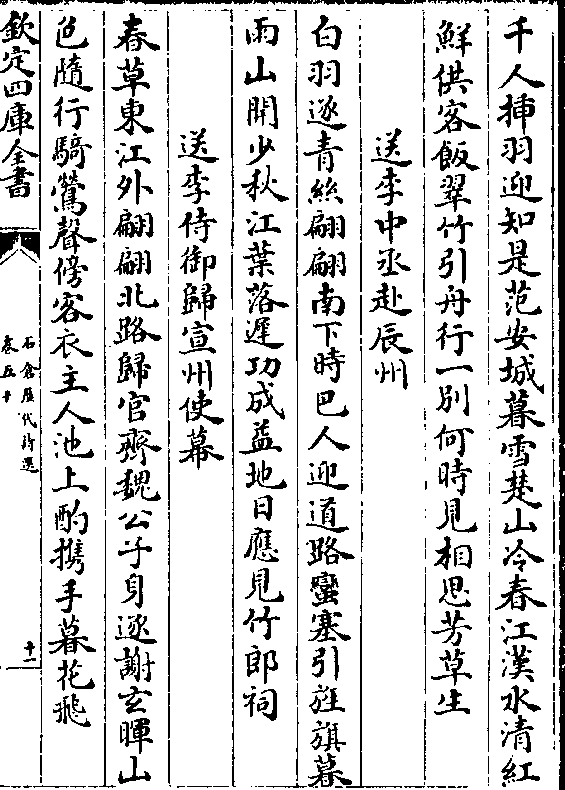 千人挿羽迎知是范安城暮雪楚山冷春江漢水清紅
鮮供客飯翠竹引舟行一別何時見相思芳草生
送李中丞赴辰州
白羽逐青絲翩翩南下時巴人迎道路蠻塞引旌旗暮
雨山開少秋江葉落遲功成益地日應見竹郎祠
送李侍御歸宣州使幕
春草東江外翩翩北路歸官齊魏公子身逐謝玄暉山
色隨行騎鶯聲傍客衣主人池上酌携手暮花飛
欽定四庫全書
石倉歷代詩選
卷五十
十一